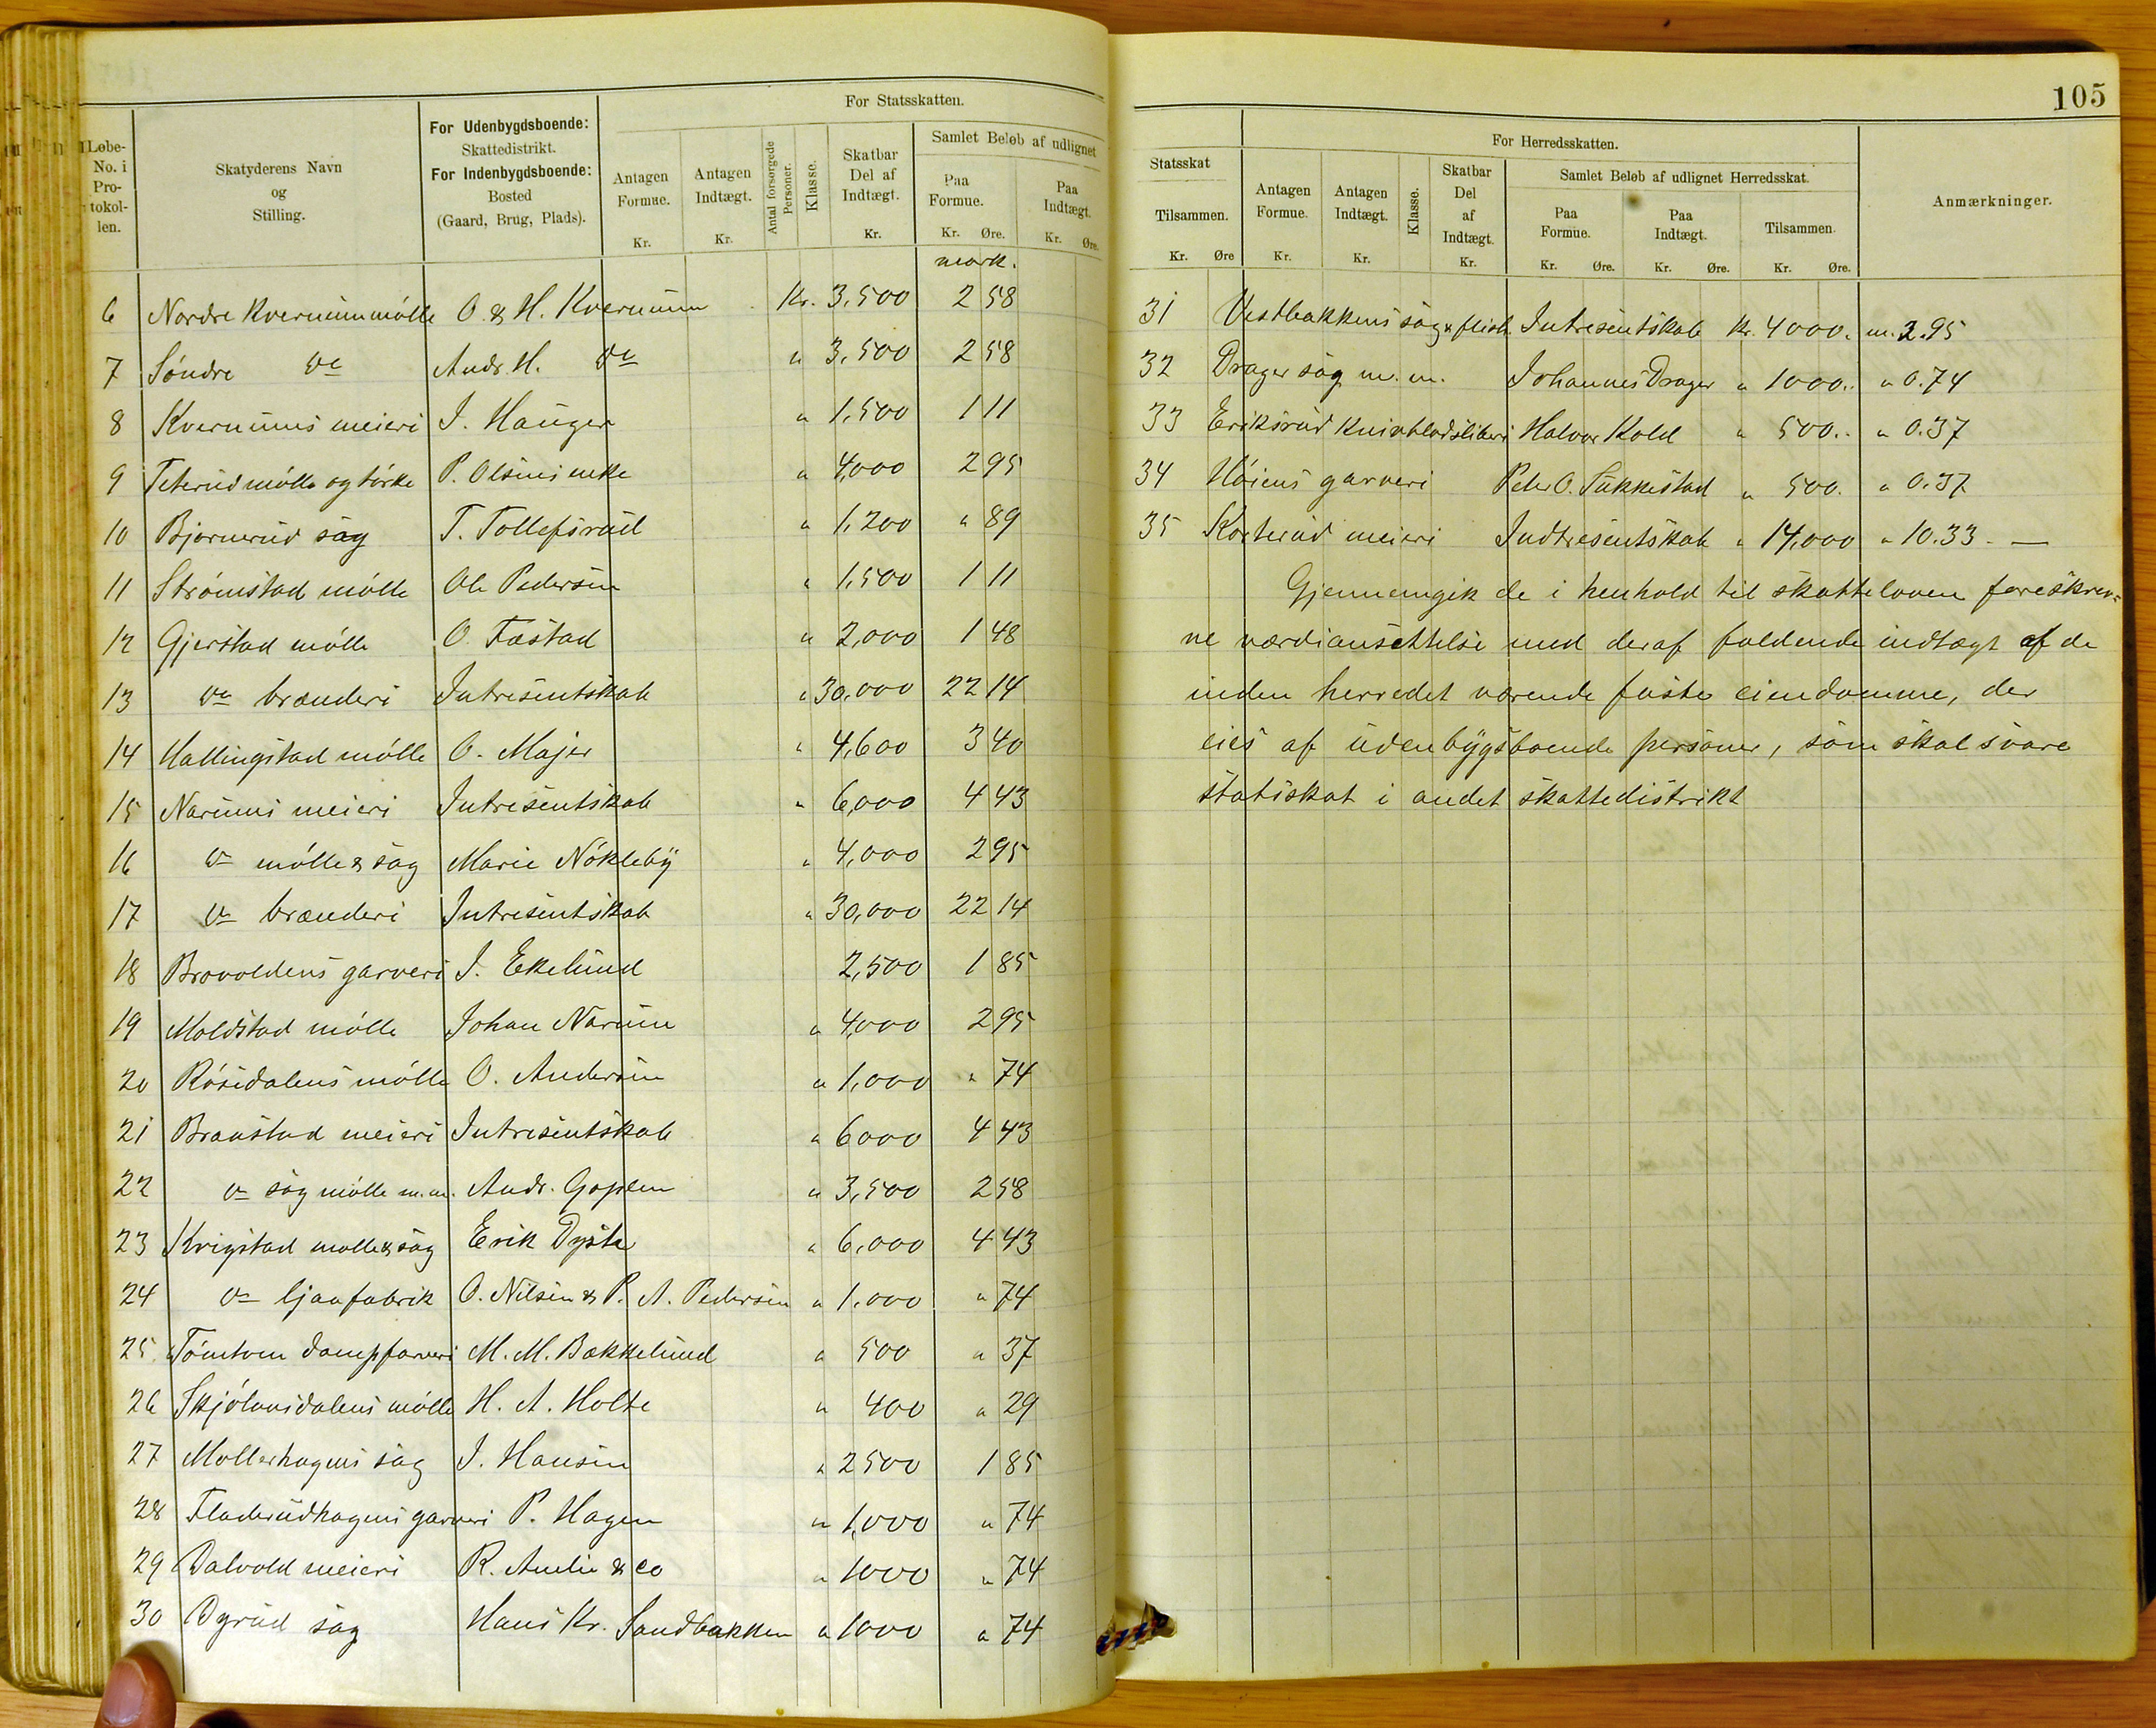 105
Løbe-No. i Pro-tokol-len.
Skatyderens Navn og Stilling.
For Udenbygdsboende: Skattedistrikt. For Indenbygdsboende: Bosted (Gaard, Brug, Plads).
For Statsskatten.
Antagen Formue. Kr.
Antagen Indtægt. Kr.
Antal forsørgede Personer.
Klasse.
Skatbar Del af Indtægt. Kr.
Samlet Beløb af udlignet
Paa Formue. Kr. Øre.
Paa Indtægt. Kr. Øre.
mark.
6 Nordre Kvernummølle O. & H. Kvernum Kr. 3,500 2 58
7 Søndre do Andr. H. do " 3,500 2 58
8 Kvernums meieri J. Hauger " 1,500 1 11
9 Teterud mølle og tørke P. Olsens enke " 4,000 2 95
10 Bjørnerud sag T. Tollefsrud " 1,200 " 89
11 Strømstad mølle Ole Pedersen " 1,500 1 11
12 Gjerstad mølle O. Fæstad " 2,000 1 48
13 do brænderi Intresentskab " 30,000 22 14
14 Hallingstad mølle O. Majer " 4,600 3 40
15 Narums meieri Intresentskab " 6,000 4 43
16 do mølle & sag Marie Nøkleby " 4,000 2 95
17 do brænderi Intresentskab " 30,000 22 14
18 Brovoldens garveri J. Ekelund 2,500 1 85
19 Moldstad mølle Johan Narum " 4,000 2 95
20 Røsedalens mølle O. Andersen " 1,000 " 74
21 Braastad meieri Intresentskab " 6000 4 43
22 do sag mølle m.m. Andr. Goplen " 3,500 2 58
23 Krigstad mølle & sag Erik Dyste " 6,000 4 43
24 do ljaafabrik O. Nilsen & P. A. Pedersen " 1,000 " 74
25 Tømten dampfarveri M. M. Bakkelund " 500 " 37
26 Skjølaasdalens mølle H. A. Holte " 400 " 29
27 Møllerhagens sag J. Hansen " 2500 1 85
28 Fladerudhagens garveri P. Hagen " 1,000 " 74
29 Dalvold meieri R. Amlie & Co " 1000 " 74
30 Dyrud sag Hans Kr. Sandbakken " 1000 " 74
Statsskat Tilsammen. Kr. Øre
For Herredsskatten.
Antagen Formue. Kr.
Antagen Indtægt. Kr.
Klasse.
Skatbar Del af Indtægt. Kr.
Samlet Beløb af udlignet Herredsskat.
Paa Formue. Kr. Øre.
Paa Indtægt. Kr. Øre.
Tilsammen. Kr. Øre.
Anmærkninger.
31 Vestbakkens sag & flish Intresentskab Kr. 4000. m. 2.95
32 Drager sag m.m. Johannes Drager " 1000.. " 0.74
33 Eriksrud knivbladsliberi Halvor Kold " 500.. " 0.37
34 Høiens garveri Peder O. Sukkestad " 500. " 0.37
35 Korterud meieri Indtresentskab " 14,000 " 10.33. —
Gjennemgik de i henhold til skatteloven foreskrev-
ne værdiansettelse med deraf faldende indtægt af de
inden herredet værende faste eiendomme, der
eies af udenbygsboende personer, som skal svare
statsskat i andet skattedistrikt